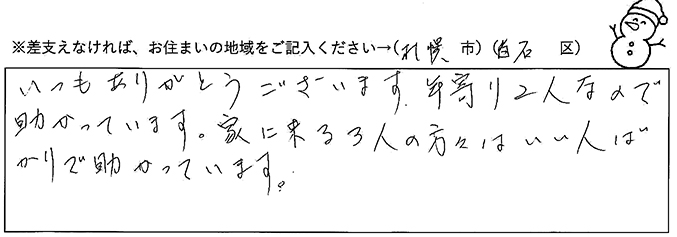 ※差支えなければ、お住まいの地域をご記入ください→(札幌 市)(白石 区)
いつもありがとうございます。年寄り2人なので
助かっています。家に来る3人の方々はいい人ば
かりで助かっています。